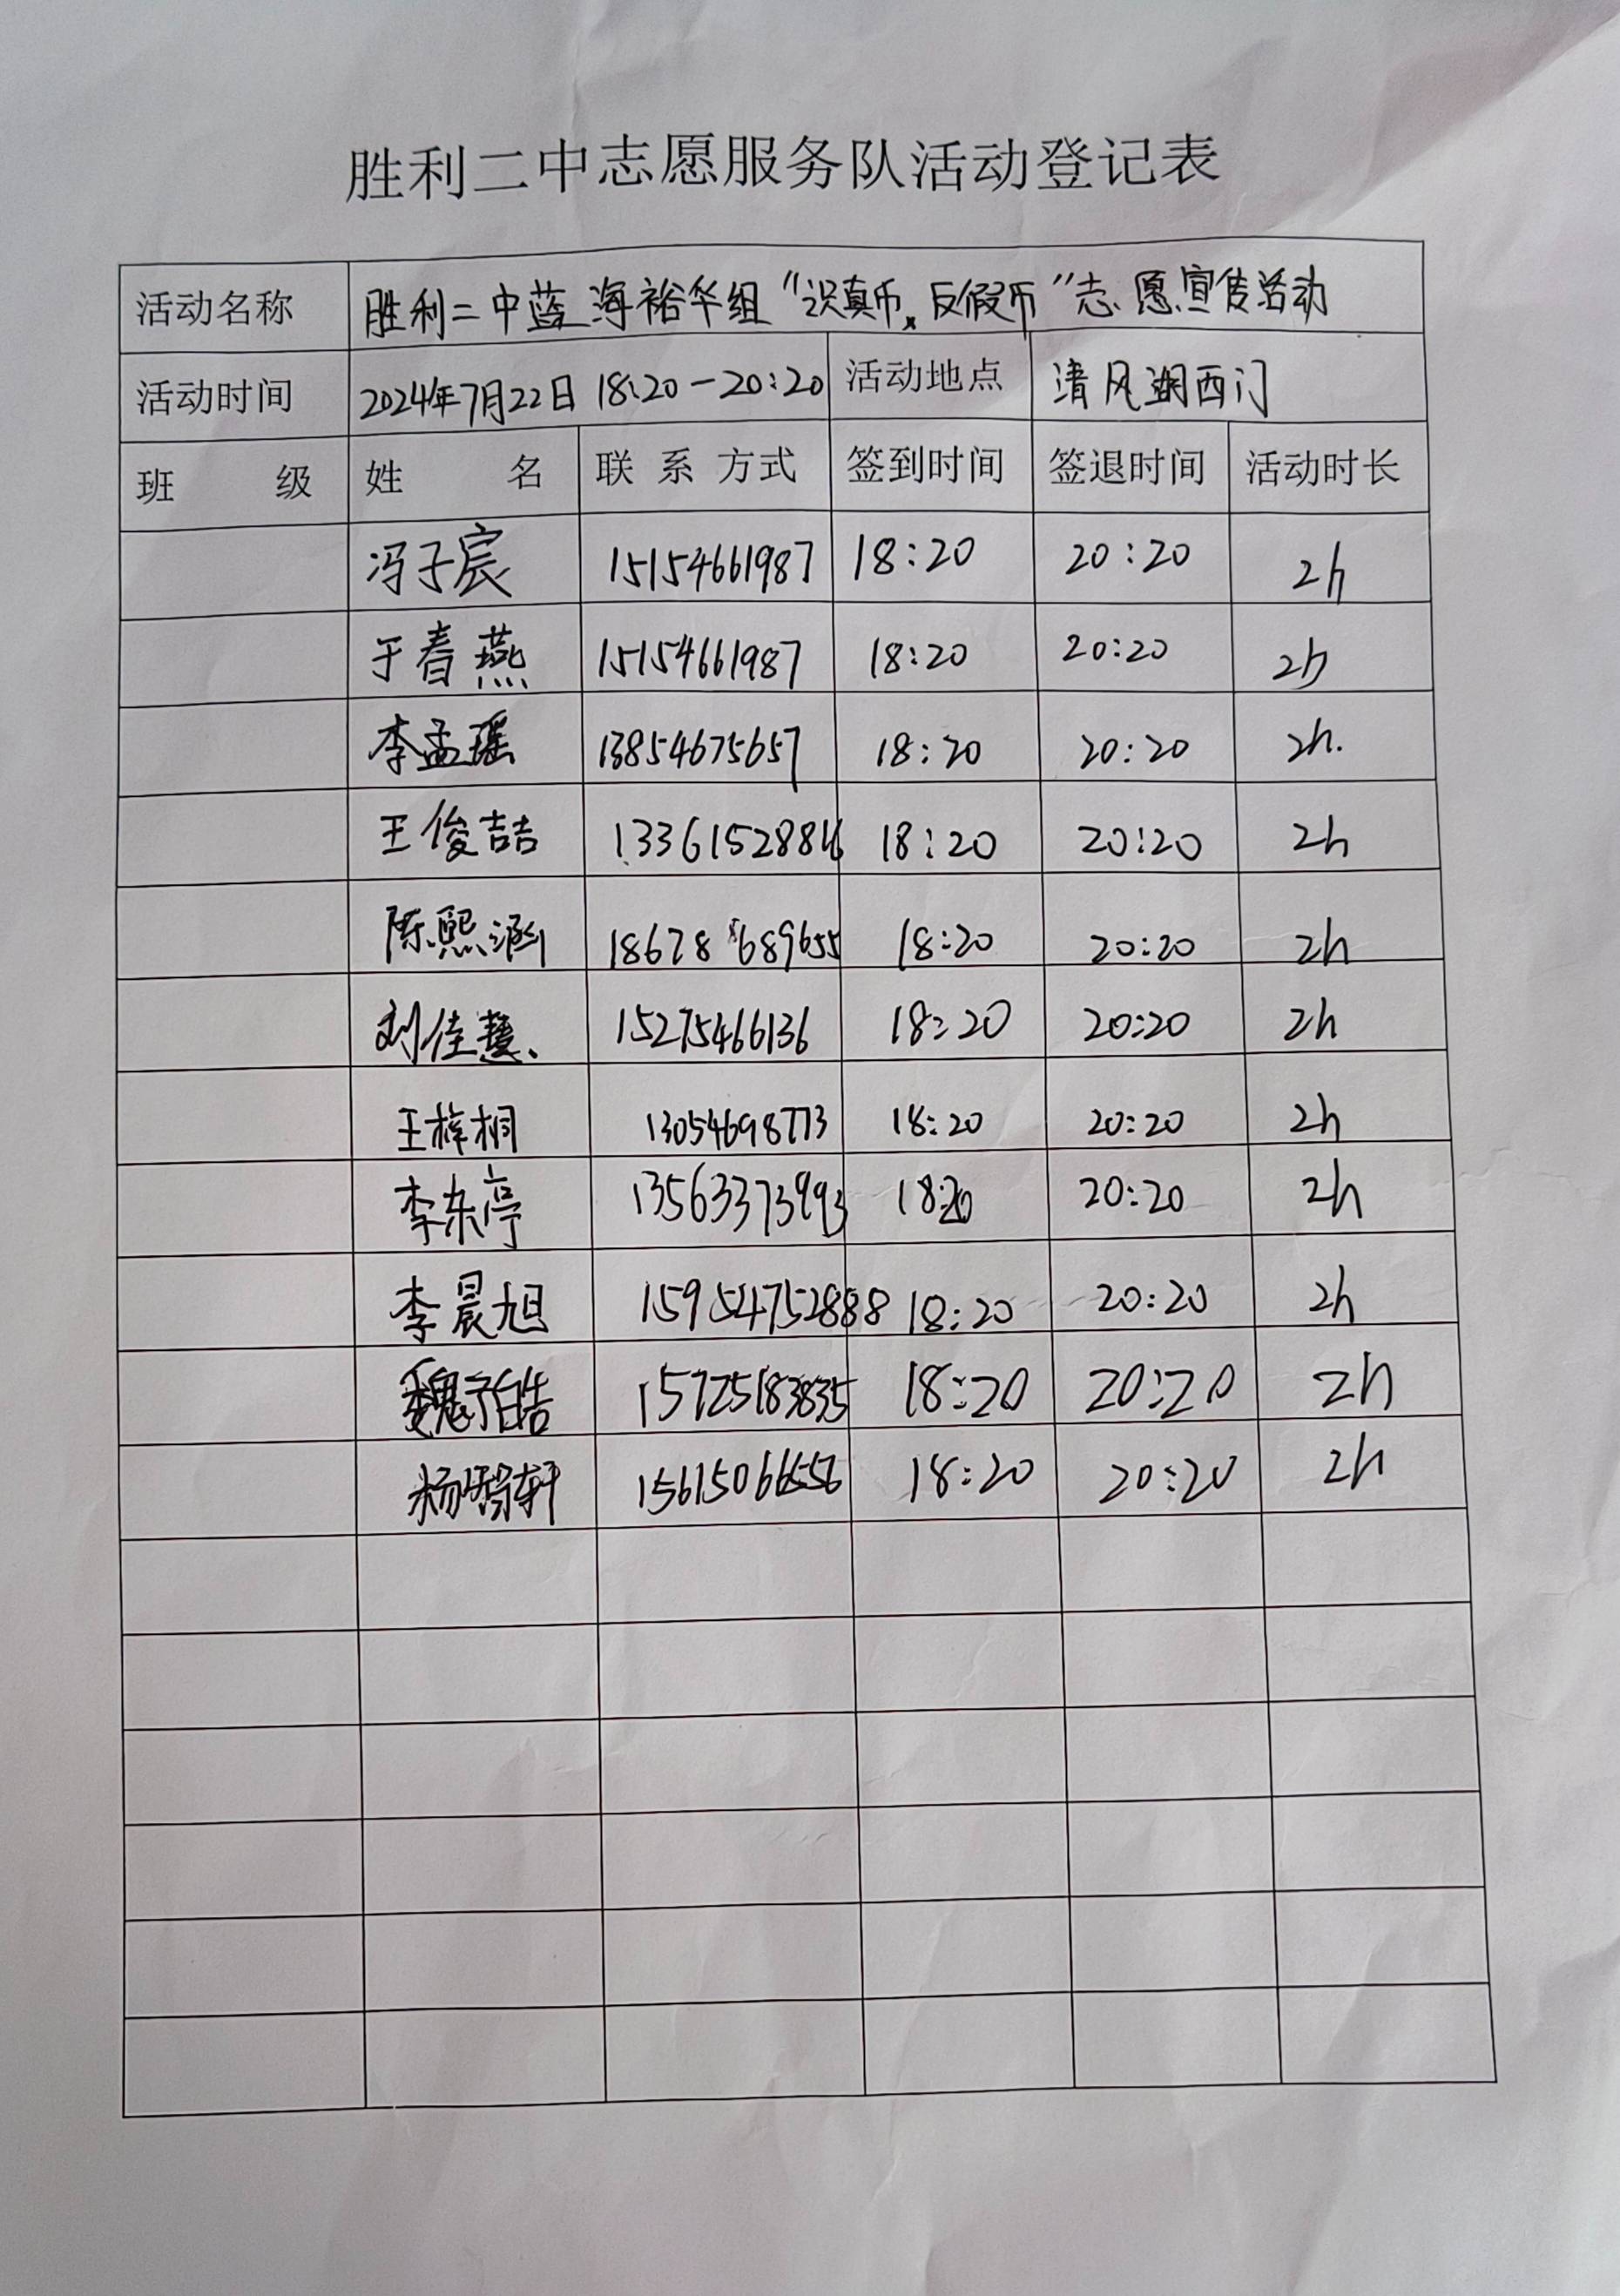 胜利二中志愿服务队活动登记表
活动名称 胜利二中蓝海裕华组“识真币、反假币”志愿宣传活动
活动时间 2024年7月22日 18:20-20:20 活动地点 清风湖西门
班 级 姓 名 联系方式 签到时间 签退时间 活动时长
冯子宸 15154661987 18:20 20:20 2h
于春燕 15154661987 18:20 20:20 2h
李孟瑶 13854675657 18:20 20:20 2h.
王俊喆 13361528816 18:20 20:20 2h
陈熙涵 18678689655 18:20 20:20 2h
刘佳慧 15275466136 18:20 20:20 2h
王梓桐 13054698773 18:20 20:20 2h
李东亭 13563373993 18:20 20:20 2h
李晨旭 15954752888 18:20 20:20 2h
15725183835 18:20 20:20 2h
15615066556 18:20 20:20 2h